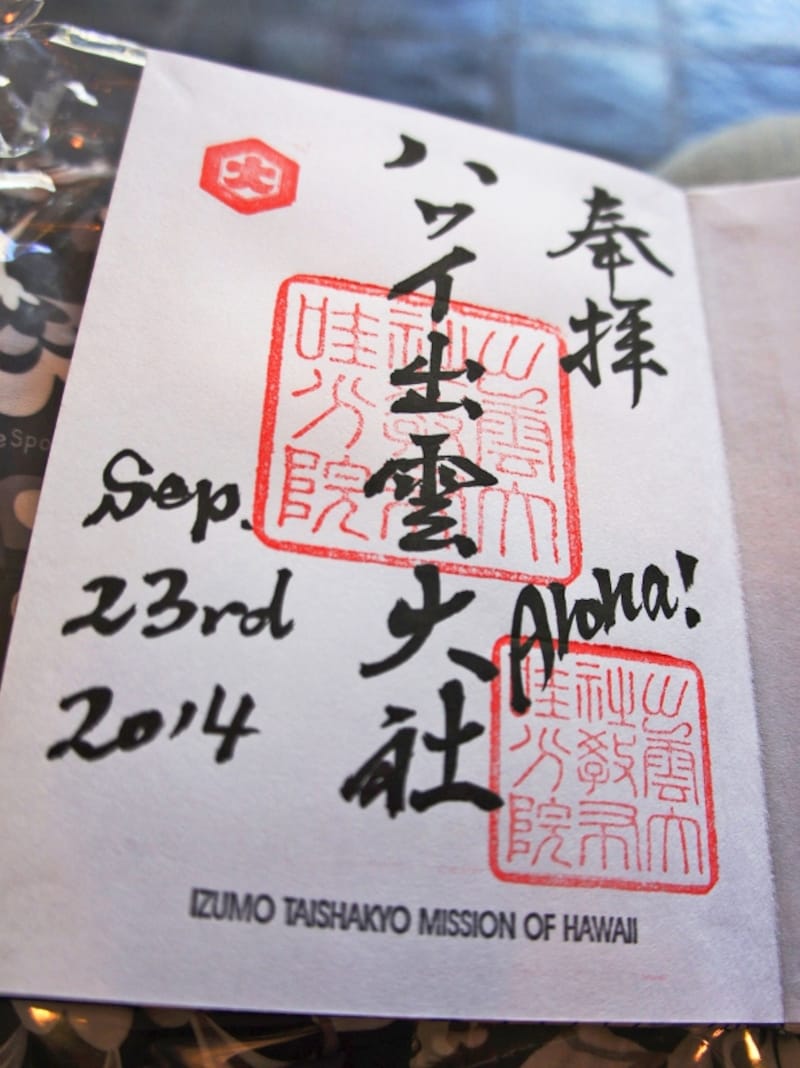 奉拝
ハワイ出雲大社
大
出雲大
社教布
哇分院
Aloha!
出雲大
社教布
哇分院
Sep.
23rd
2014
IZUMO TAISHAKYO MISSION OF HAWAII